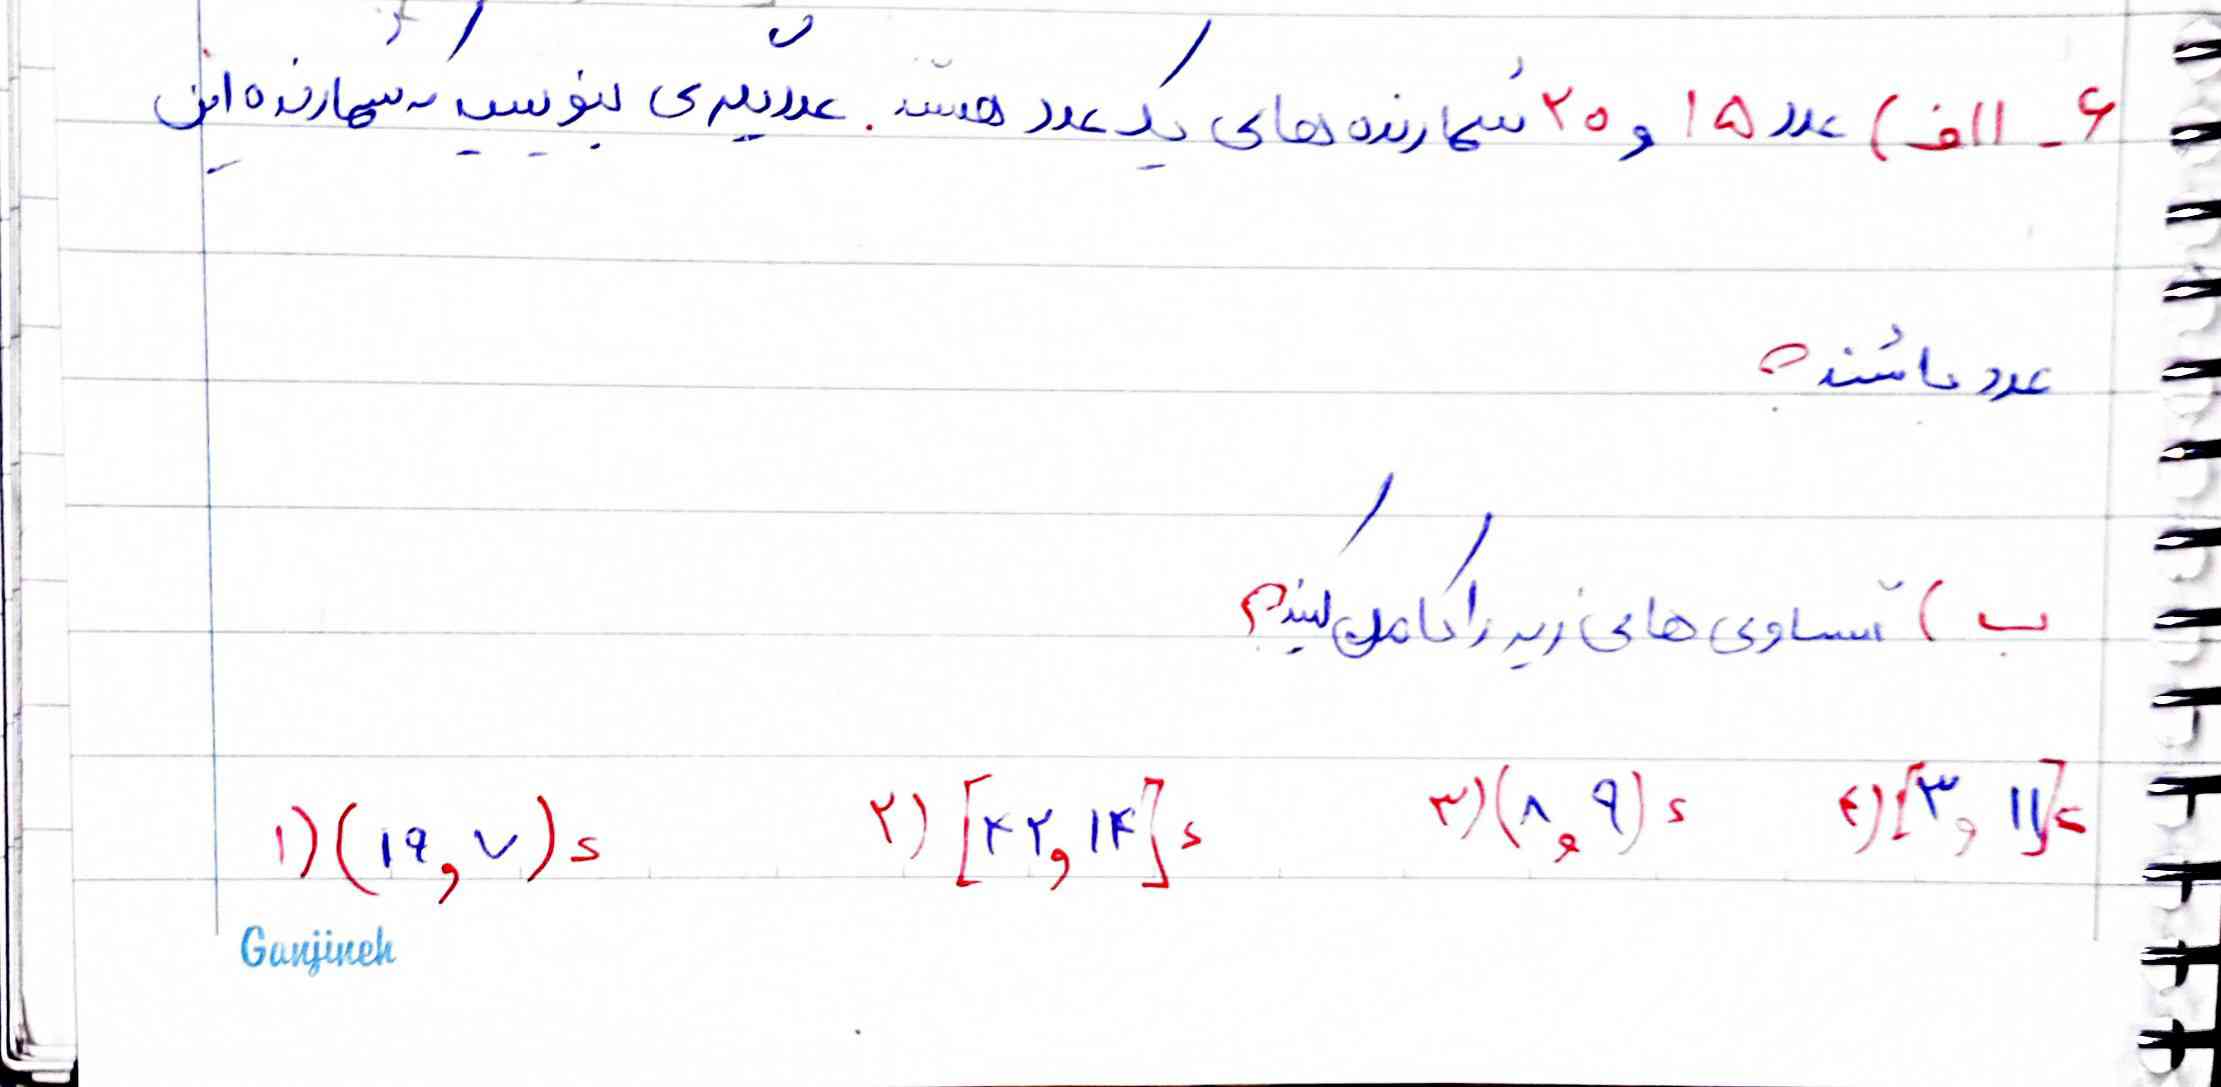 ۶- الف) عدد ۱۵ و ۲۰ شمارنده های یک عدد هستند. عدد دیگری بنویسید که شمارنده این
عدد باشند؟
ب) تساوی های زیر را کامل کنید؟
۱) (۱۹ و ۷) = ۲) [۴۲ و ۱۴] = ۳) (۸ و ۹) = ۴) [۳ و ۱۱] =
Ganjineh